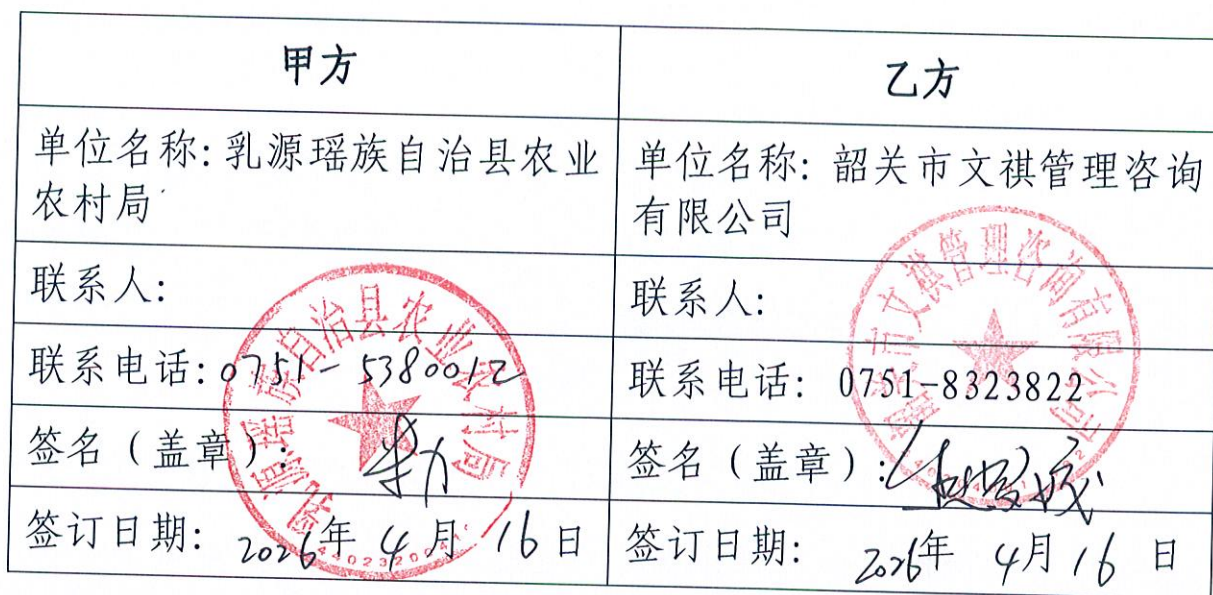 甲方
乙方
单位名称:乳源瑶族自治县农业
农村局
单位名称: 韶关市文祺管理咨询
有限公司
联系人:
联系人:
联系电话:0751-5380012
联系电话: 0751-8323822
签名（盖章）:
签名（盖章）:
签订日期: 2026年 4月 16日
签订日期: 2026年 4月 16 日
乳源瑶族自治县农业农村局
韶关市文祺管理咨询有限公司